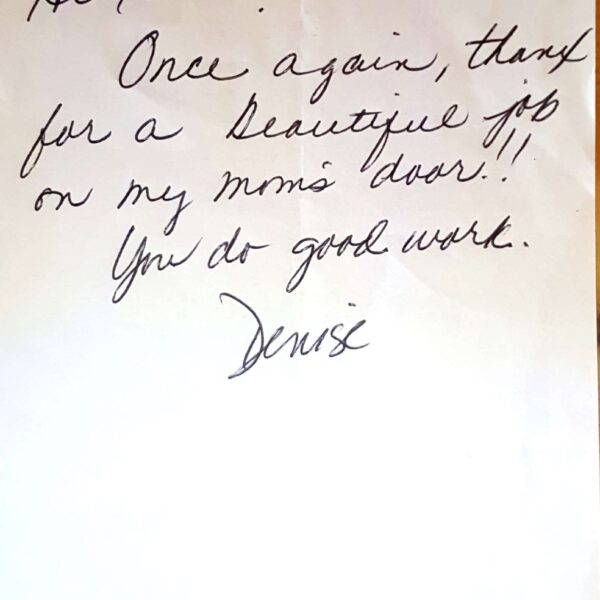 Once again, thanx
for a beautiful job
on my mom's door!!
You do good work.
Denise